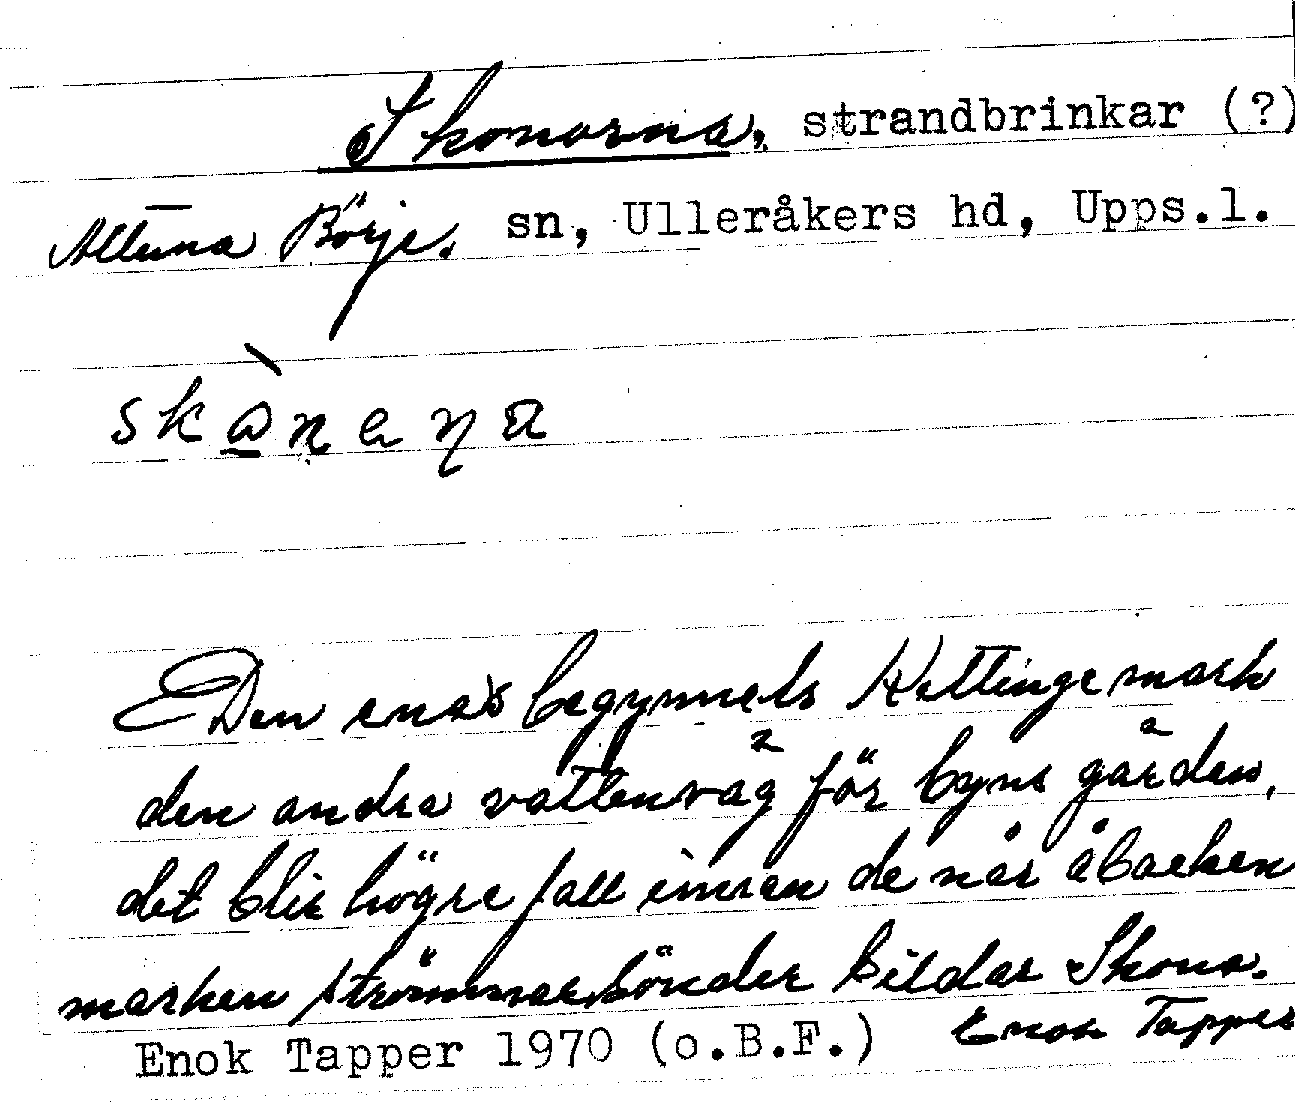 Skonorna, strandbrinkar (?)
Altuna Börje. sn, Ulleråkers hd, Upps.l.
skònena
Den enas begynnels Kättinge mark
den andra vattenväg för byns gärden,
det blir högre fall innan de når åbacken
marken strömmar sönder bildar Skona.
Enok Tapper 1970 (o.B.F.) Enok Tapper